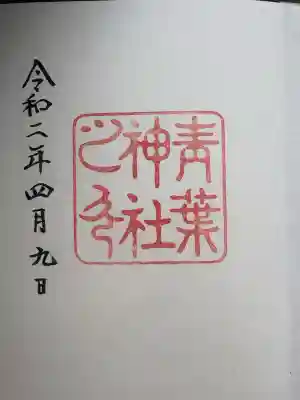 青葉
神社
令和二年四月九日